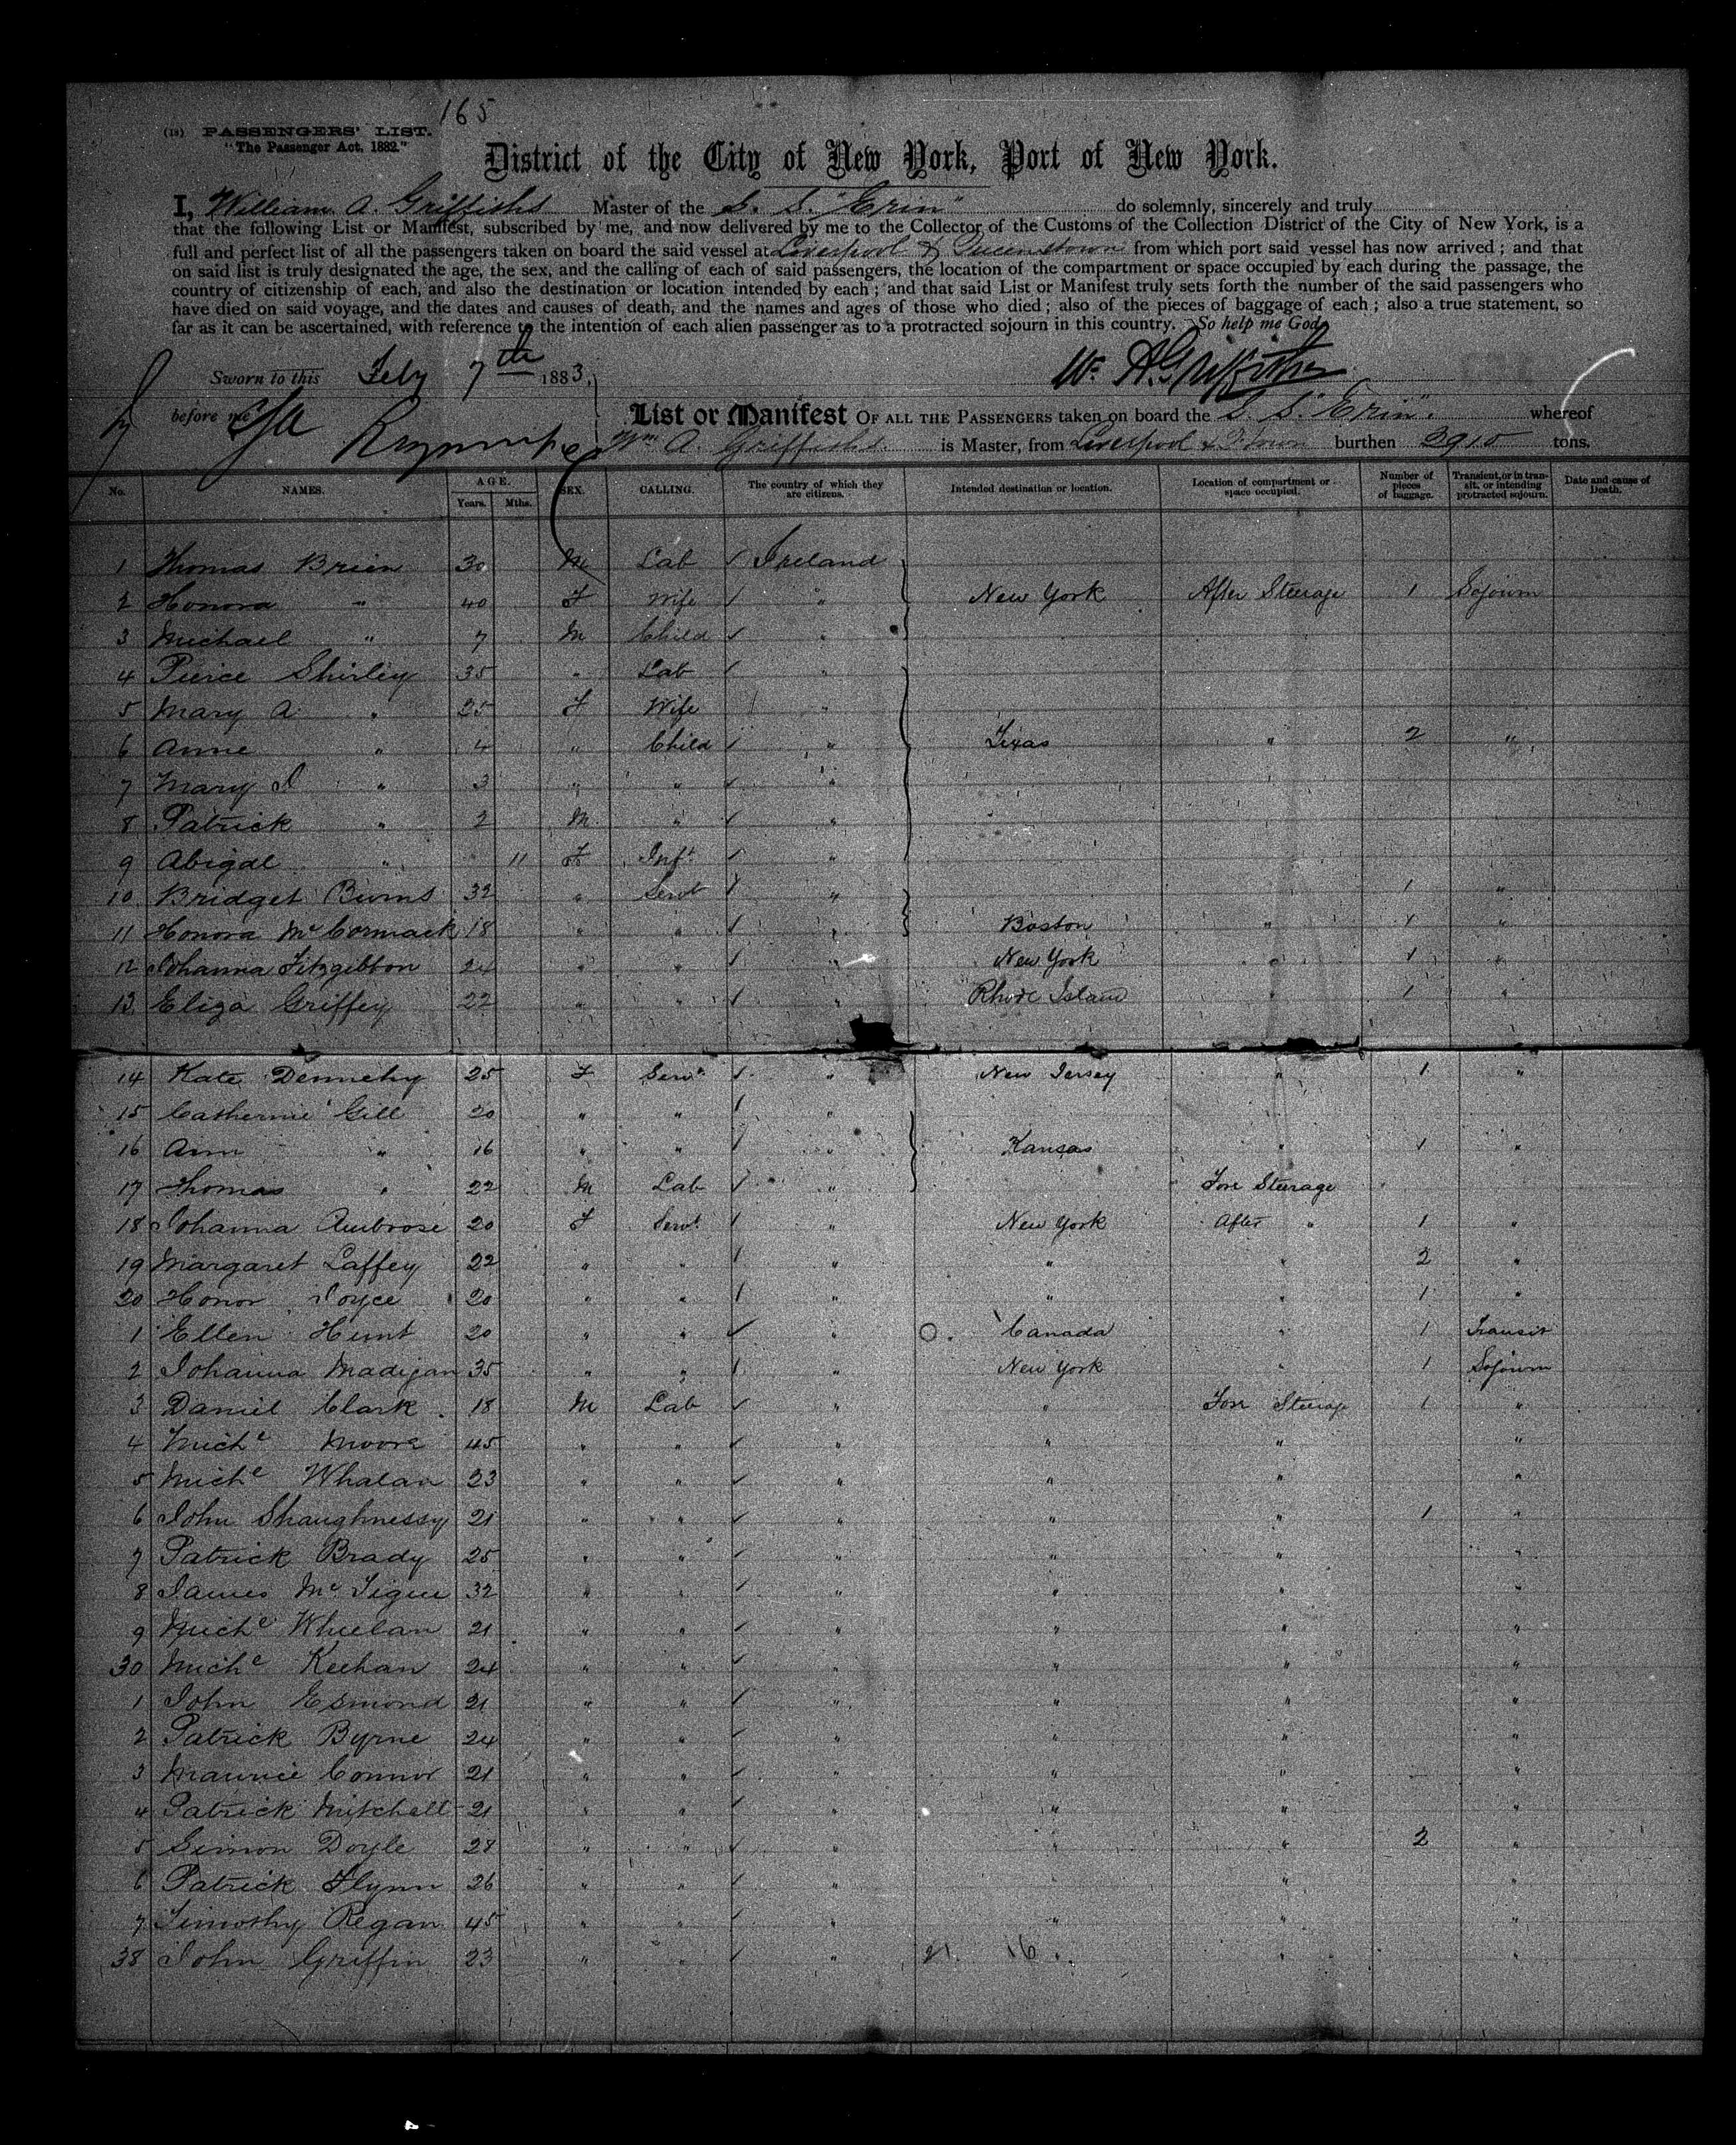 165
(18) PASSENGERS' LIST.
"The Passenger Act, 1882."
District of the City of New York, Port of New York.
I, William A. Griffiths Master of the S. S. "Erin" do solemnly, sincerely and truly
that the following List or Manifest, subscribed by me, and now delivered by me to the Collector of the Customs of the Collection District of the City of New York, is a
full and perfect list of all the passengers taken on board the said vessel at Liverpool & Queenstown from which port said vessel has now arrived; and that
on said list is truly designated the age, the sex, and the calling of each of said passengers, the location of the compartment or space occupied by each during the passage, the
country of citizenship of each, and also the destination or location intended by each; and that said List or Manifest truly sets forth the number of the said passengers who
have died on said voyage, and the dates and causes of death, and the names and ages of those who died; also of the pieces of baggage of each; also a true statement, so
far as it can be ascertained, with reference to the intention of each alien passenger as to a protracted sojourn in this country. So help me God,
Sworn to this Feby 7th 1883, W. A. Griffiths
before me
List or Manifest OF ALL THE PASSENGERS taken on board the S. S. "Erin". whereof
Wm A. Griffiths. is Master, from Liverpool & Q. Town burthen 3910 tons.
No. NAMES. AGE. Years. Mths. SEX. CALLING. The country of which they are citizens. Intended destination or location. Location of compartment or space occupied. Number of pieces of baggage. Transient, or in transit, or intending protracted sojourn. Date and cause of Death.
1 Thomas Brien 30 M Lab Ireland
2 Honora " 40 F Wife " New York After Steerage 1 Sojourn
3 Michael " 7 M Child "
4 Pierce Shirley 35 " Lab "
5 Mary A " 25 F Wife "
6 Anne " 4 " Child " Texas " 2 "
7 Mary J " 3 " " "
8 Patrick " 2 M " "
9 Abigal " 11 F Inft "
10 Bridget Burns 32 " Servt " 1 "
11 Honora McCormack 18 " " " Boston " 1 "
12 Johanna Fitzgibbon 24 " " " New York " 1 "
13 Eliza Griffey 22 " " " Rhode Island " 1 "
14 Kate Dennehy 25 F Servt " New Jersey " 1 "
15 Catherine Gill 20 " " "
16 Ann " 16 " " " Kansas " 1 "
17 Thomas " 22 M Lab " Fore Steerage
18 Johanna Ambrose 20 F Servt " New York After " 1 "
19 Margaret Laffey 22 " " " " " 2 "
20 Honor Joyce 20 " " " " " 1 "
1 Ellen Hunt 20 " " " O. Canada " 1 Transit
2 Johanna Madigan 35 " " " New York " 1 Sojourn
3 Daniel Clark 18 M Lab " " Fore Steerage 1 "
4 Miche Moore 45 " " " " " "
5 Miche Whalan 23 " " " " " "
6 John Shaughnessy 21 " " " " " 1 "
7 Patrick Brady 25 " " " " " "
8 James McTigue 32 " " " " " "
9 Miche Whelan 21 " " " " " "
30 Miche Keehan 24 " " " " " "
1 John Esmond 21 " " " " " "
2 Patrick Byrne 24 " " " " " "
3 Maurice Connor 21 " " " " " "
4 Patrick Mitchell 21 " " " " " "
5 Simon Doyle 28 " " " " " 2 "
6 Patrick Flynn 26 " " " " " "
7 Timothy Regan 45 " " " " " "
38 John Griffin 23 " " " 21 16 " "